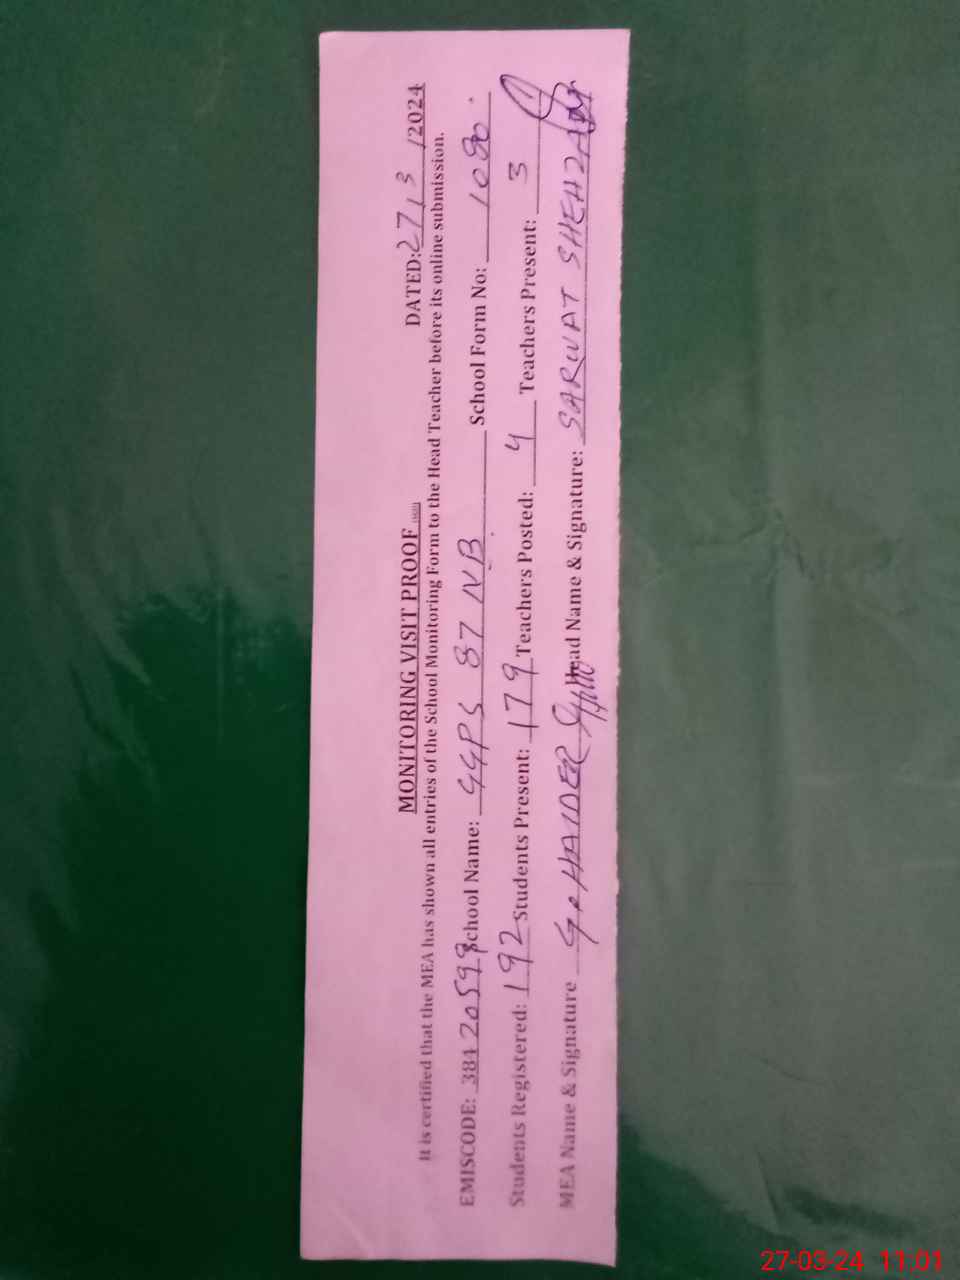 MONITORING VISIT PROOF
DATED: 27/3/2024
It is certified that the MEA has shown all entries of the School Monitoring Form to the Head Teacher before its online submission.
EMISCODE: 38420599 School Name: GGPS 87 NB School Form No: 1080
Students Registered: 192 Students Present: 179 Teachers Posted: 4 Teachers Present: 3
MEA Name & Signature G. HAIDER Head Name & Signature: SARWAT SHEHZADI
27-03-24 11:01